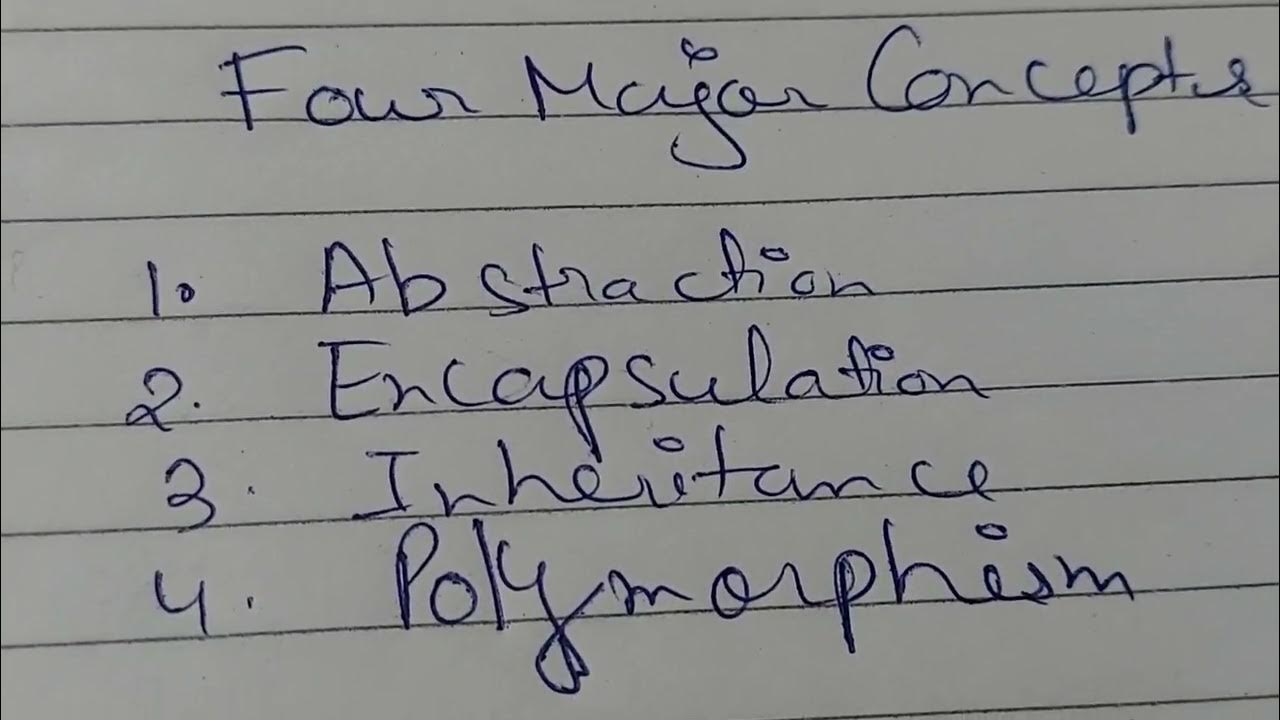 Four Major Concepts
1. Abstraction
2. Encapsulation
3. Inheritance
4. Polymorphism